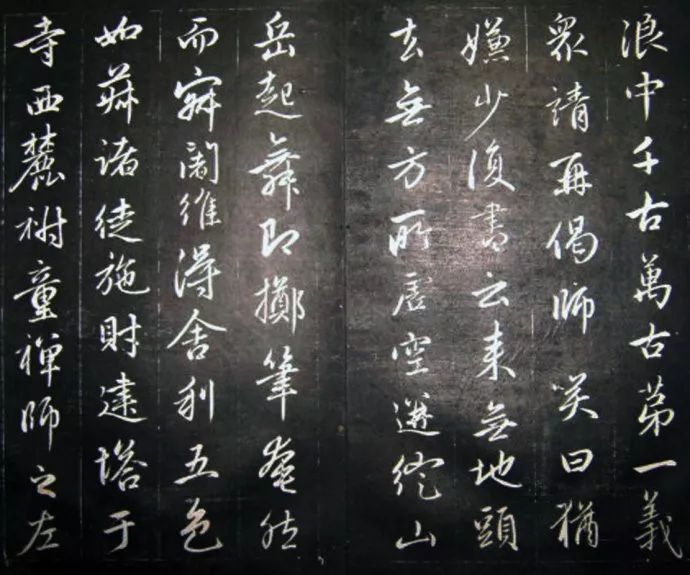 浪中千古萬古苐一義
衆請再偈師笑曰猶
嫌少復書云来無地頭
去無方所虛空迸綻山
岳起舞即擲筆奄然
而寂闍維得舍利五色
如麻諸徒施財建塔于
寺西麓祔童禅師之左